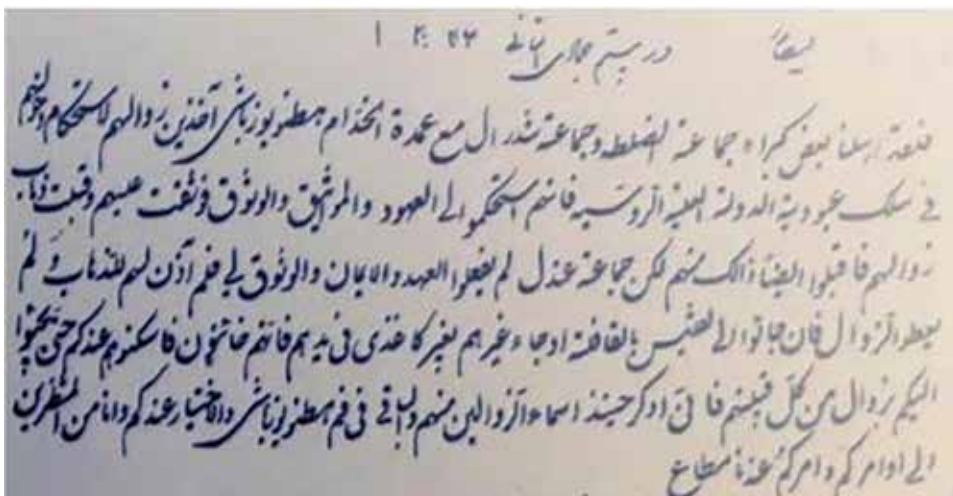 در بیستم جمادی الثانی
فلقد ارسلنا بعض كبراء جماعة و جماعة مع عمدة الخدام يوزباشی آخذين زوالهم لاستحكام دخولهم
في سلك عبودية الدولة العلية الروسيه فانهم استحكموا لي العهود والمواثيق والوثوق فوثقت عليهم وقبلت ذهاب
زوالهم فاقبلوا ايضا ذالك منهم لكن جماعة لم يفعلوا العهد والايمان والوثوق لي فلم آذن لهم للذهاب ولم
يعطوا الزوال فان جائوا الي بالقافلة او جاء غيرهم بغير كاغذی في يديهم فانهم خائنون فاسكنوهم عندكم حتى
اليكم زوال من كل قبيلتهم فاني اذكر حينئذ اسماء الزوالين منهم والباقي في فم يوزباشی والاختيار عندكم وانا من المنتظرين
الى اوامركم وامركم عندنا مطاع